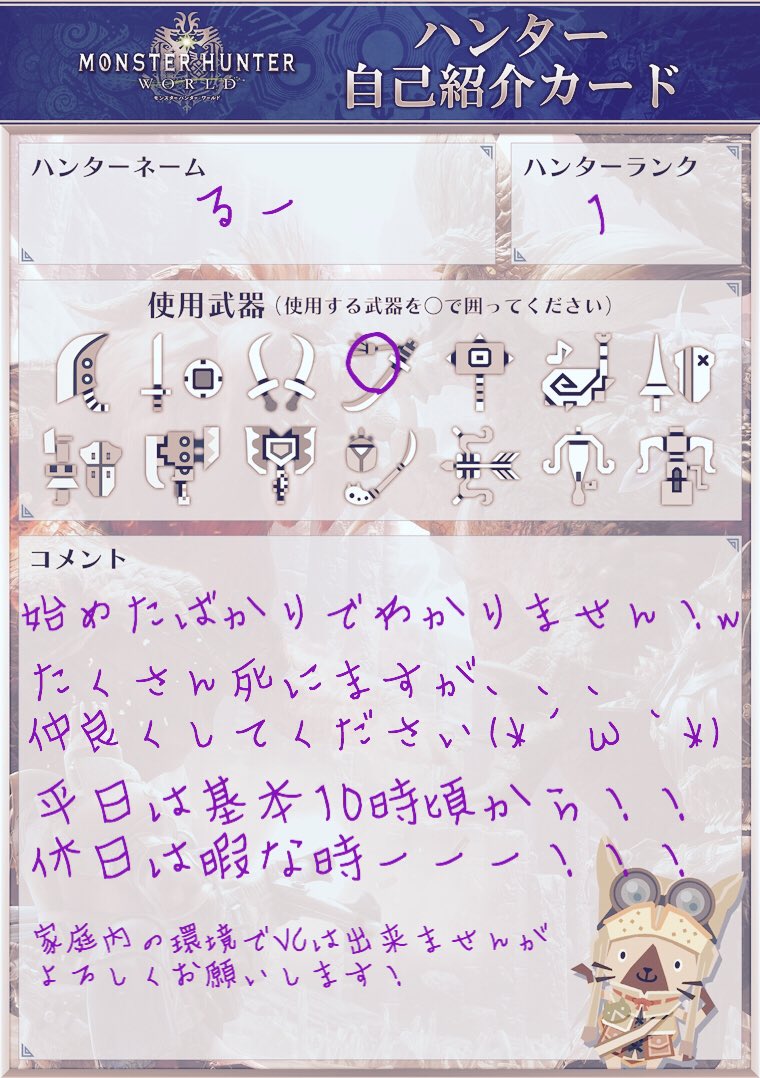 MONSTER HUNTER
WORLD
モンスターハンター:ワールド
ハンター
自己紹介カード
ハンターネーム
るー
ハンターランク
1
使用武器(使用する武器を○で囲ってください)
コメント
始めたばかりでわかりません!w
たくさん死にますが、、、
仲良くしてください(*´ω`*)
平日は基本10時頃から!!
休日は暇な時ーーー!!!
家庭内の環境でVCは出来ませんが
よろしくお願いします!